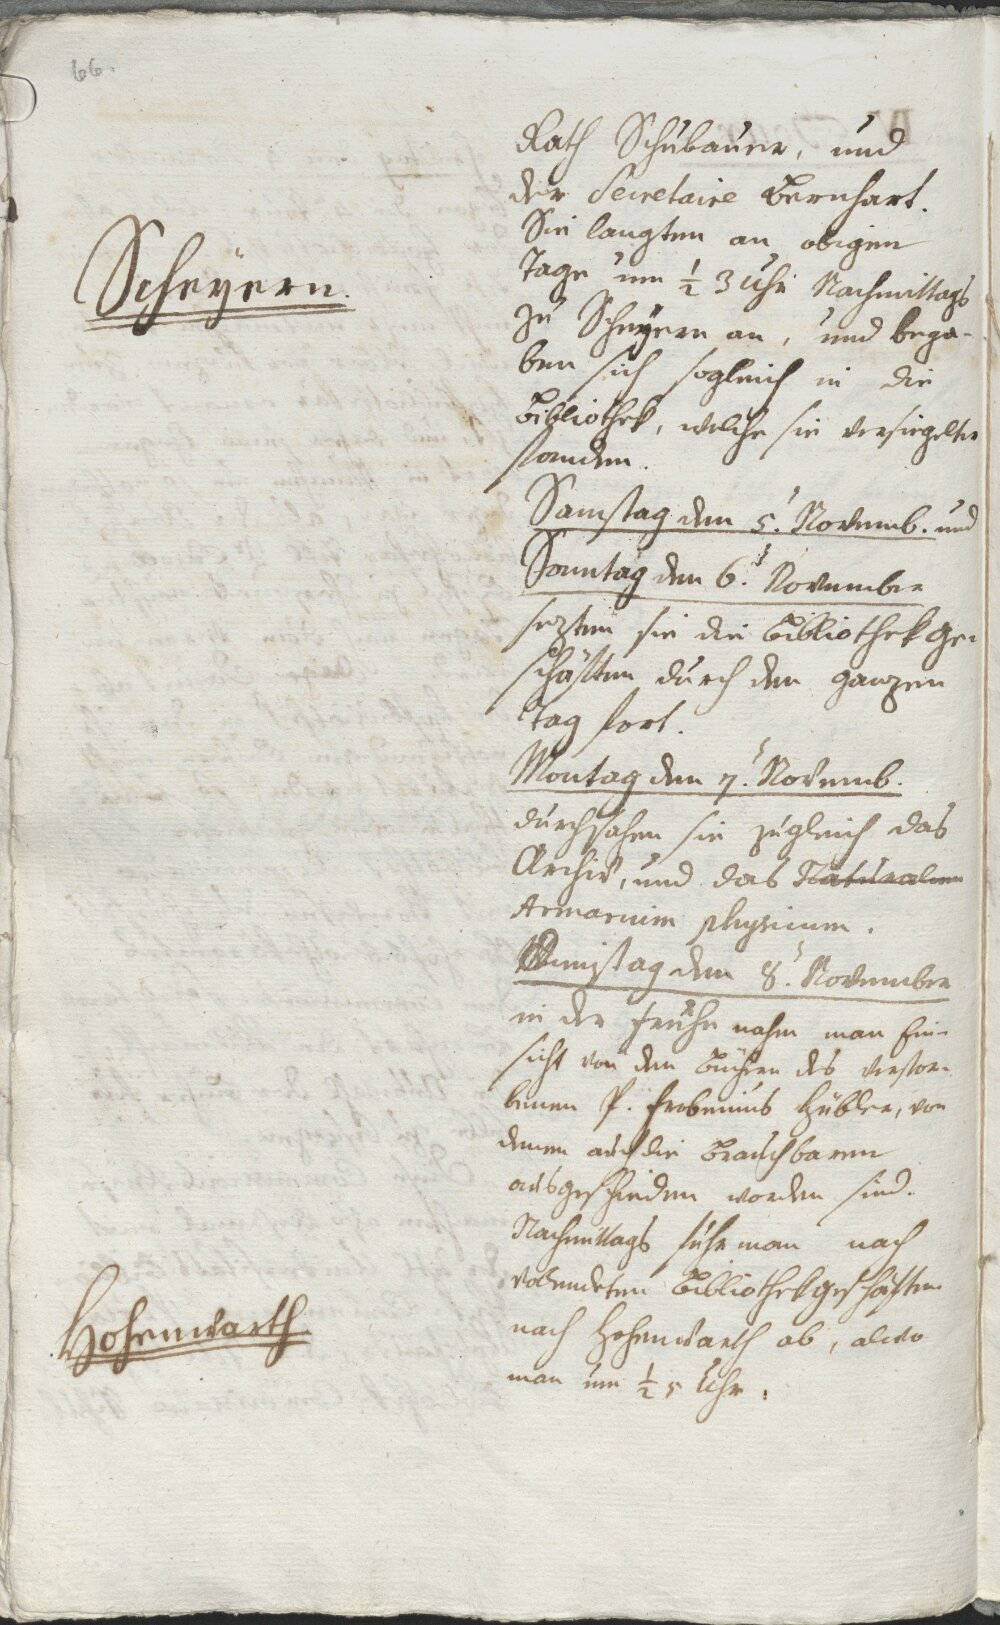 66.
Rath Schubauer, und
der Secretaire Bernhart.
Sie langten an obigen
Tage um ½ 3 Uhr Nachmittags
Scheyern.
zu Scheyern an, und bega-
ben sich sogleich in die
Bibliothek, welche sie versiegelter
fanden.
Samstag den 5. Novemb. und
Sonntag den 6. November
sezten sie die Bibliothek ge-
schäften durch den ganzen
Tag fort.
Montag den 7. Novemb.
durchsahen sie zugleich das
Archiv, und das Naturalien
Armarium physicum.
Dienstag den 8. November
in der Fruhe nahm man Ein-
sicht von den Büchern des verstor-
benen P. Frobenius Hübler, von
denen auch die Brauchbaren
ausgeschieden worden sind.
Nachmittags fuhr man nach
vollendeten Bibliothekgeschäften
Hohenwarth
nach Hohenwarth ab, alwo
man um ½ 5 Uhr.